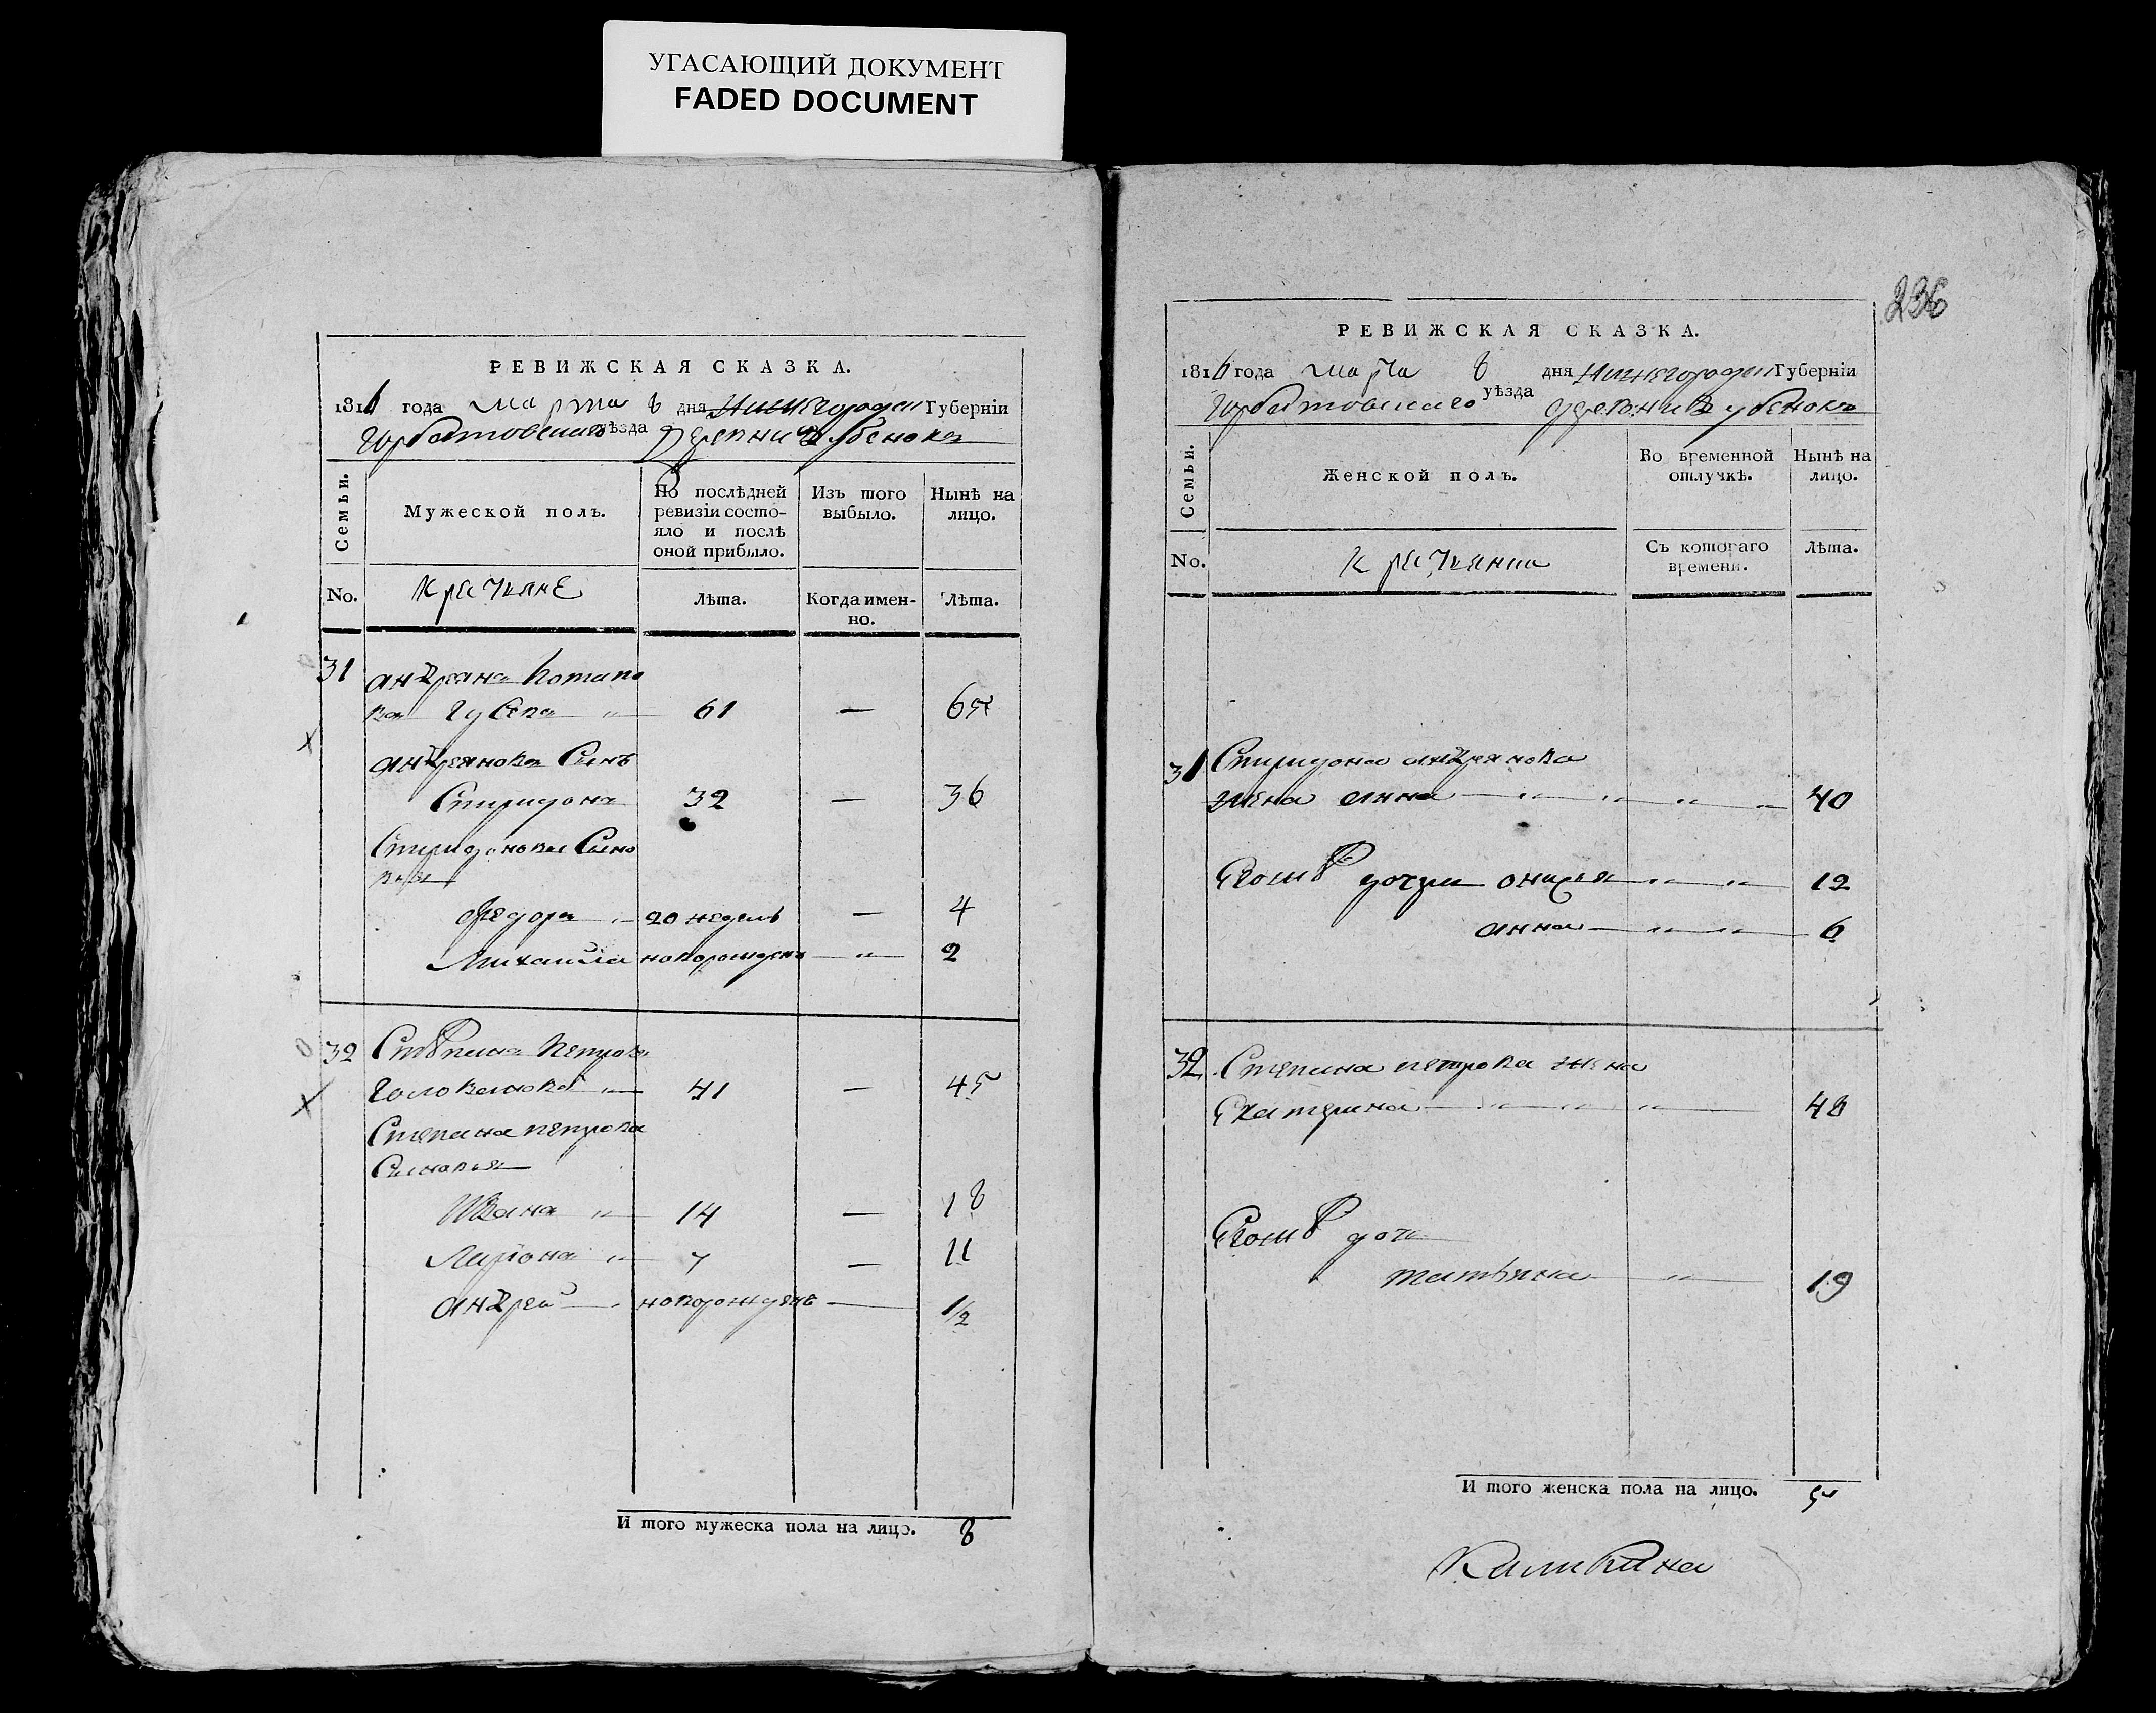 УГАСАЮЩИЙ ДОКУМЕНТ
FADED DOCUMENT
РЕВИЖСКАЯ СКАЗКА.
1816 года марта 8 дня Нижегородск Губерніи
Горбатовскаго уѣзда деревни Дубенокъ
Семьи.
Мужеской полъ.
По послѣдней ревизіи состояло и послѣ оной прибыло.
Изъ того выбыло.
Нынѣ на лицо.
No.
Крестьяне
Лѣта.
Когда именно.
Лѣта.
31
андреянъ Потапо
въ Гусевъ 61 — 65
андреяновъ Сынъ
Спиридонъ 32 — 36
Спиридоновы Сыно
вья
Федоръ 20 недель — 4
Михаила новорожденъ — 2
32 Стѣпанъ Петровъ
Головановъ 41 — 45
Степана петрова
Сыновья
Иванъ 14 — 18
Ларионъ 7 — 11
андрей новорожденъ — 1/2
И того мужеска пола на лицо. 8
236
РЕВИЖСКАЯ СКАЗКА.
1816 года марта 8 дня Нижегородск Губерніи
Горбатовскаго уѣзда деревни Дубенокъ
Семьи.
Женской полъ.
Во временной отлучкѣ.
Нынѣ на лицо.
No.
Крестьянки
Съ котораго времени.
Лѣта.
31 Спиридона андреянова
жена анна 40
Егожъ дочери онисья 12
анна 6
32. Степана петрова жена
Екатерина 48
Егожъ дочь
татьяна 19
И того женска пола на лицо. 5